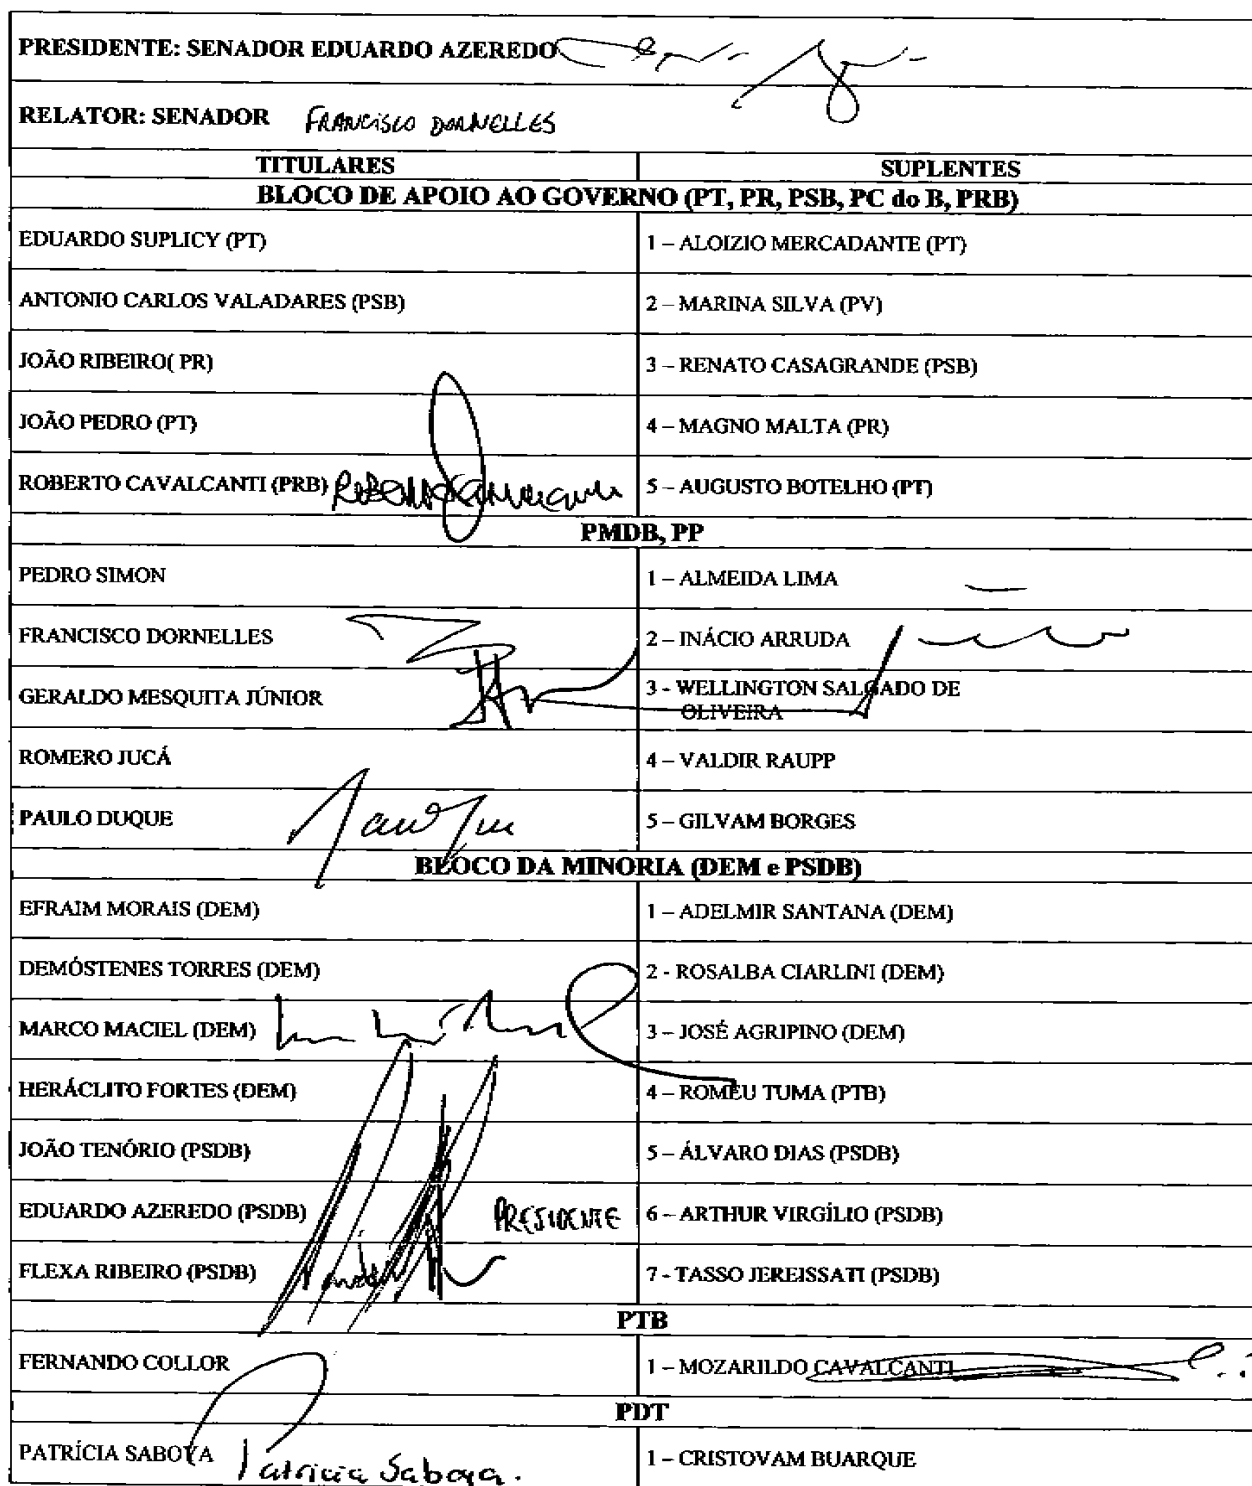 PRESIDENTE: SENADOR EDUARDO AZEREDO
RELATOR: SENADOR FRANCISCO DORNELLES
TITULARES SUPLENTES
BLOCO DE APOIO AO GOVERNO (PT, PR, PSB, PC do B, PRB)
EDUARDO SUPLICY (PT) 1 – ALOIZIO MERCADANTE (PT)
ANTONIO CARLOS VALADARES (PSB) 2 – MARINA SILVA (PV)
JOÃO RIBEIRO( PR) 3 – RENATO CASAGRANDE (PSB)
JOÃO PEDRO (PT) 4 – MAGNO MALTA (PR)
ROBERTO CAVALCANTI (PRB) Roberto Cavalcanti 5 – AUGUSTO BOTELHO (PT)
PMDB, PP
PEDRO SIMON 1 – ALMEIDA LIMA
FRANCISCO DORNELLES 2 – INÁCIO ARRUDA
GERALDO MESQUITA JÚNIOR 3 - WELLINGTON SALGADO DE
OLIVEIRA
ROMERO JUCÁ 4 – VALDIR RAUPP
PAULO DUQUE 5 – GILVAM BORGES
BLOCO DA MINORIA (DEM e PSDB)
EFRAIM MORAIS (DEM) 1 – ADELMIR SANTANA (DEM)
DEMÓSTENES TORRES (DEM) 2 - ROSALBA CIARLINI (DEM)
MARCO MACIEL (DEM) 3 – JOSÉ AGRIPINO (DEM)
HERÁCLITO FORTES (DEM) 4 – ROMEU TUMA (PTB)
JOÃO TENÓRIO (PSDB) 5 – ÁLVARO DIAS (PSDB)
EDUARDO AZEREDO (PSDB) PRESIDENTE 6 – ARTHUR VIRGÍLIO (PSDB)
FLEXA RIBEIRO (PSDB) 7 - TASSO JEREISSATI (PSDB)
PTB
FERNANDO COLLOR 1 – MOZARILDO CAVALCANTI
PDT
PATRÍCIA SABOYA Patrícia Saboya. 1 – CRISTOVAM BUARQUE